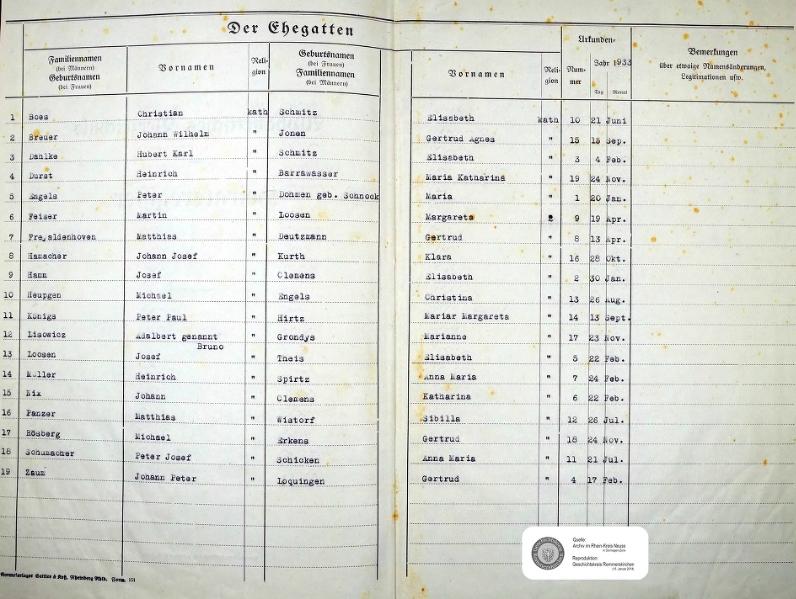 Der Ehegatten
Familiennamen
(bei Männern)
Geburtsnamen
(bei Frauen)
Vornamen
Reli-
gion
Geburtsnamen
(bei Frauen)
Familiennamen
(bei Männern)
Vornamen
Reli-
gion
Urkunden-
Num-
mer
Jahr 1933
Tag Monat
Bemerkungen
über etwaige Namensänderungen,
Legitimationen usw.
1 Boes Christian kath Schmitz Elisabeth kath 10 21 Juni
2 Breuer Johann Wilhelm " Jonen Gertrud Agnes " 15 15 Sep.
3 Dahlke Hubert Karl " Schmitz Elisabeth " 3 4 Feb.
4 Durst Heinrich " Barrawasser Maria Katharina " 19 24 Nov.
5 Engels Peter " Dohmen geb. Schnock Maria " 1 20 Jan.
6 Feiser Martin " Loosen Margareta 9 19 Apr.
7 Frewaldenhoven Matthias " Deutzmann Gertrud " 8 13 Apr.
8 Hamacher Johann Josef " Kurth Klara " 16 28 Okt.
9 Hann Josef " Clemens Elisabeth " 2 30 Jan.
10 Heupgen Michael " Engels Christina " 13 26 Aug.
11 Königs Peter Paul " Hirtz Mariar Margareta " 14 13 Sept.
12 Lisowicz Adalbert genannt " Grondys Marianne " 17 23 Nov.
Bruno
13 Loosen Josef " Theis Elisabeth " 5 22 Feb.
14 Müller Heinrich " Spirtz Anna Maria " 7 24 Feb.
15 Nix Johann " Clemens Katharina " 6 22 Feb.
16 Panzer Matthias " Wistorf Sibilla " 12 26 Jul.
17 Rösberg Michael " Erkens Gertrud " 18 24 Nov.
18 Schumacher Peter Josef " Schicken Anna Maria " 11 21 Jul.
19 Zaun Johann Peter " Loquingen Gertrud " 4 17 Feb.
Quelle:
Archiv im Rhein-Kreis Neuss
Reproduktion:
Geschichtskreis Rommerskirchen